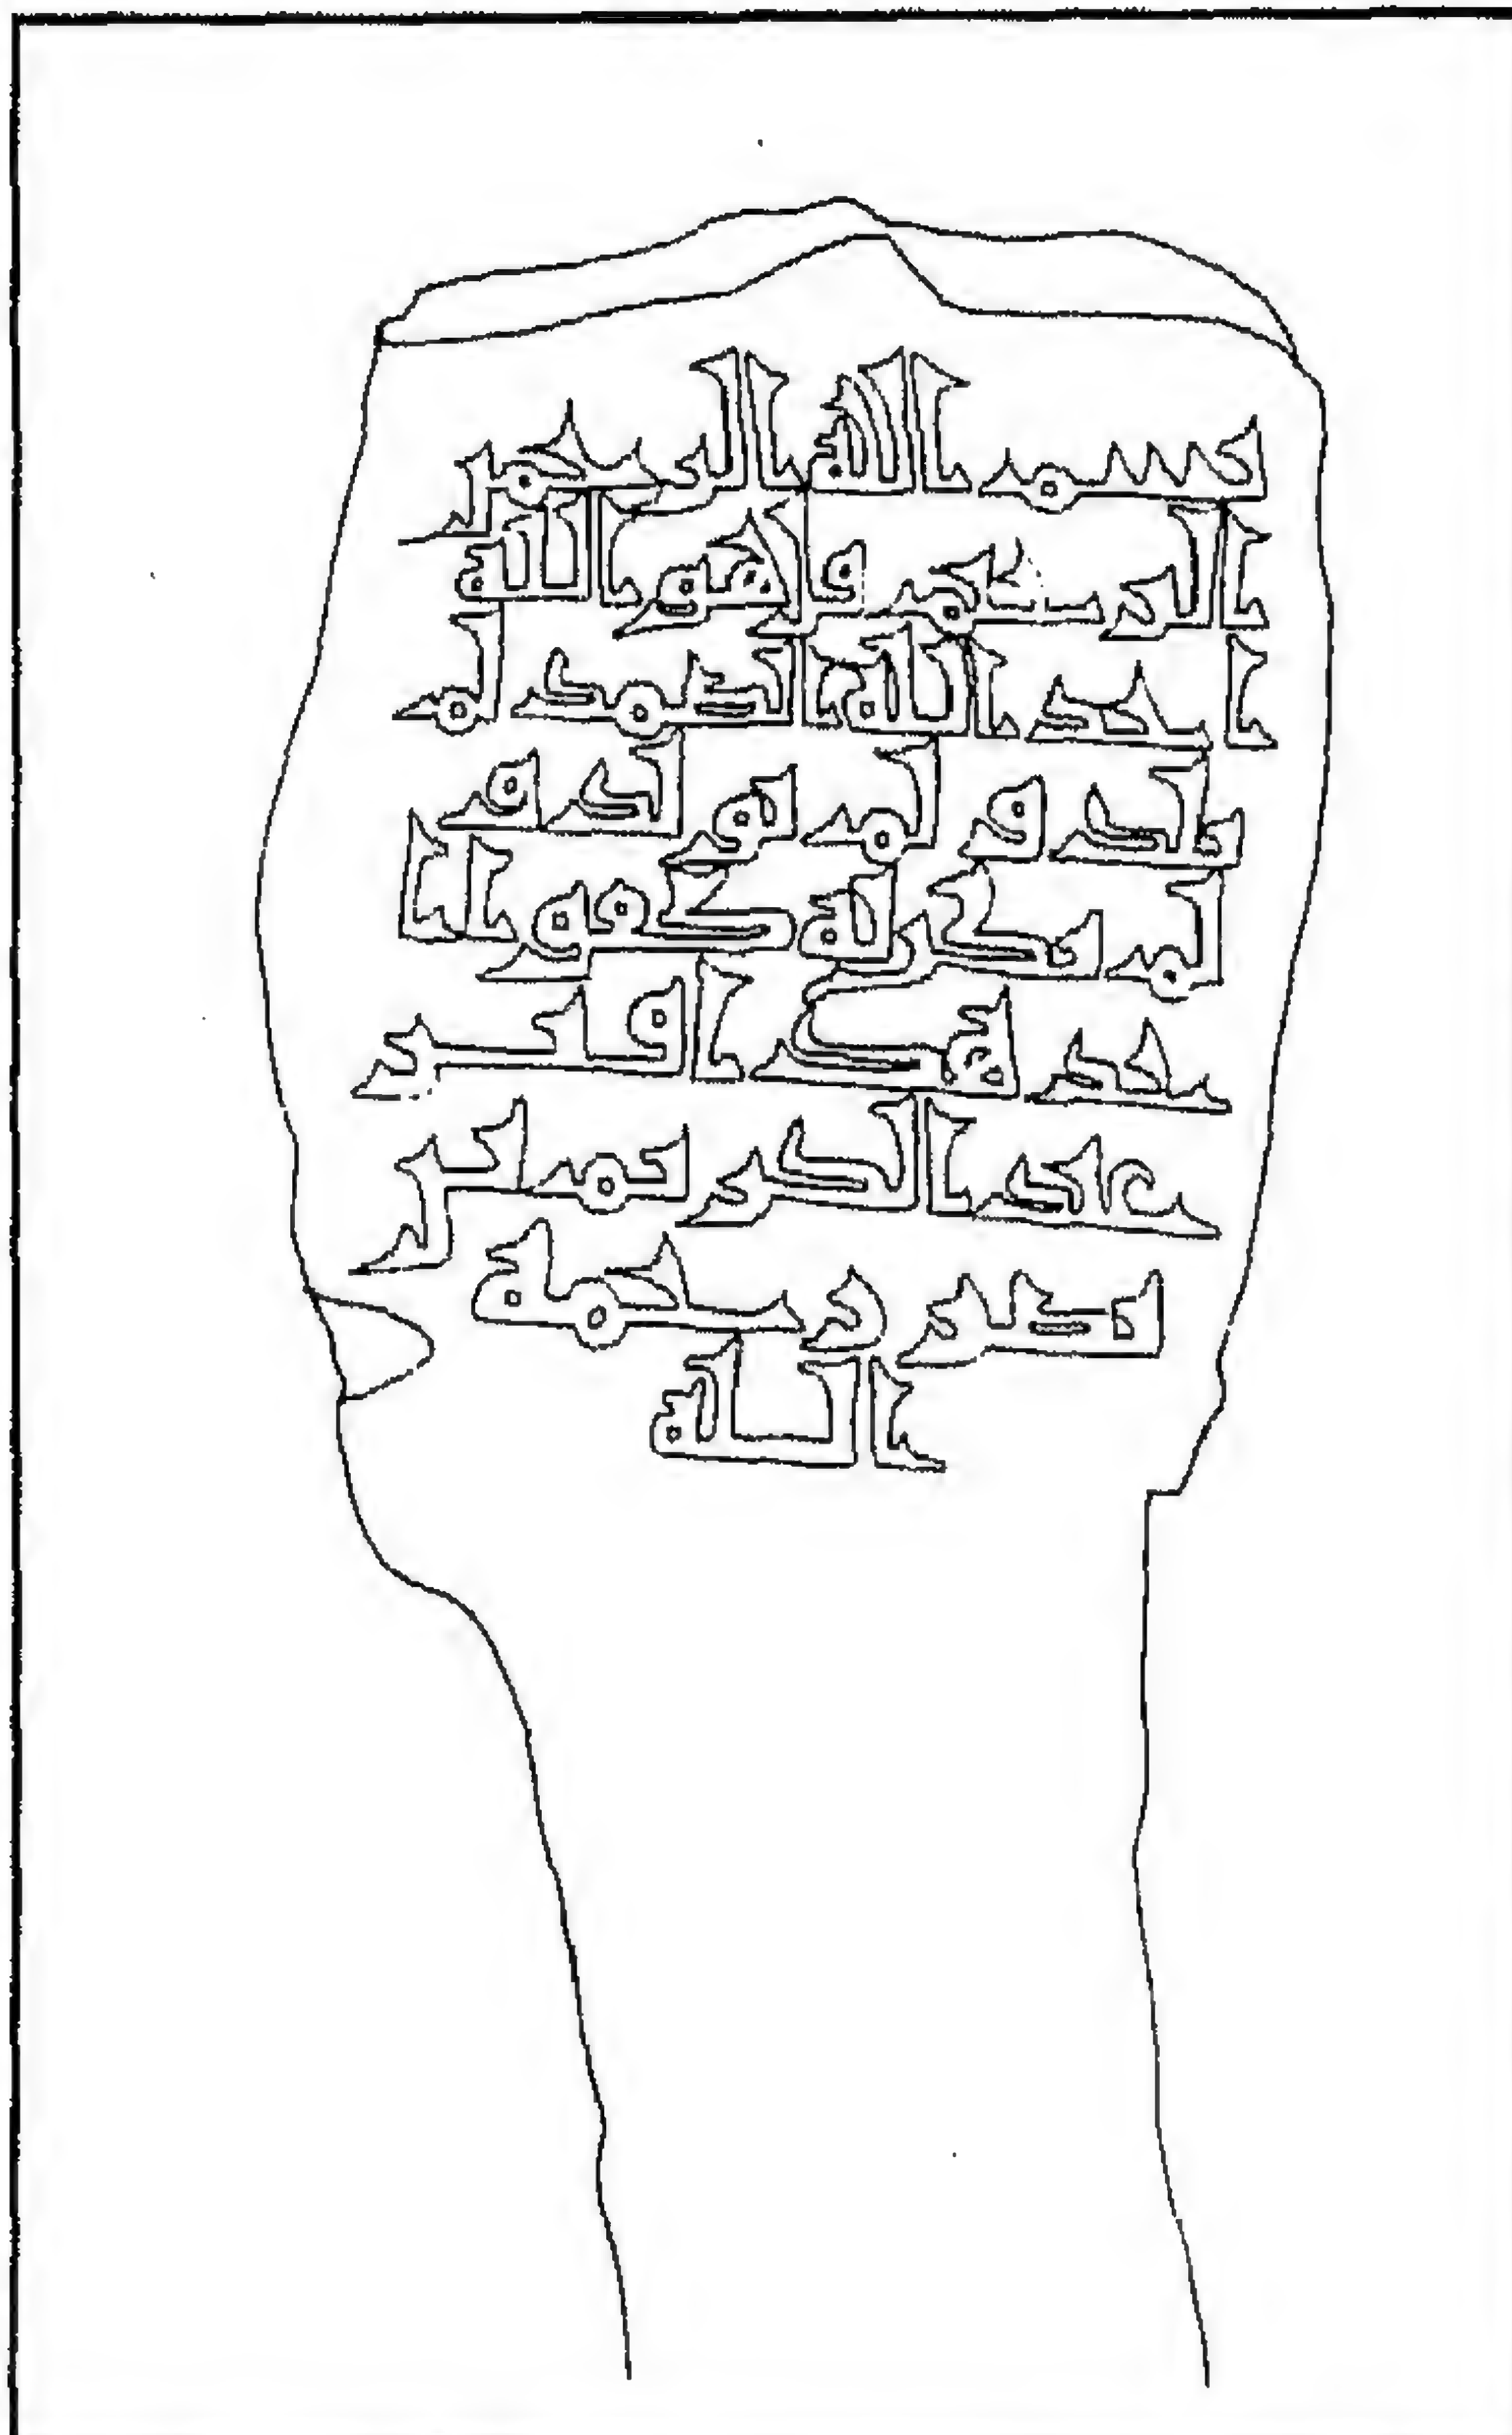 بسم الله الرحمن
الرحيم قل هو الله
احد الله الصمد لم
يلد و لم يولد و
لم يكن له كفوا ا
حد هذا قبر
عبد الكريم بن
بكر رحمة
الله